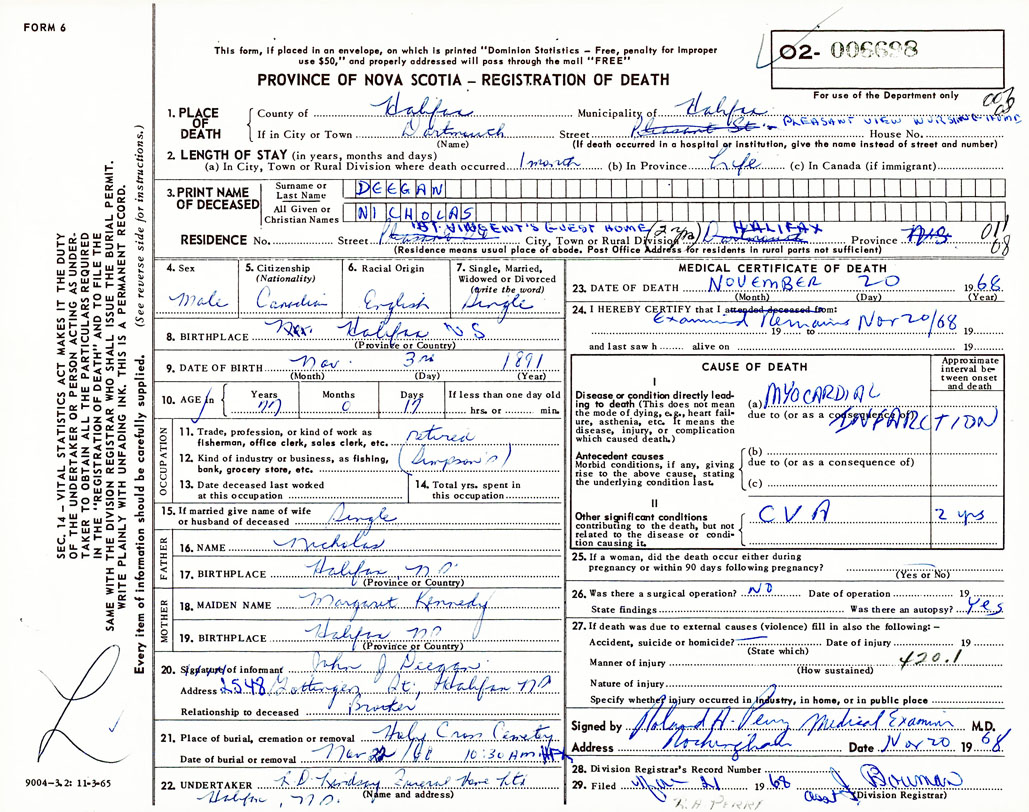 FORM 6
This form, if placed in an envelope, on which is printed "Dominion Statistics – Free, penalty for improper
use $50," and properly addressed will pass through the mail "FREE"
PROVINCE OF NOVA SCOTIA – REGISTRATION OF DEATH
02- 006698
For use of the Department only
1. PLACE OF DEATH
County of Halifax Municipality of Halifax
If in City or Town Dartmouth Street Pleasant St. PLEASANT VIEW NURSING HOME House No.
(Name) (If death occurred in a hospital or institution, give the name instead of street and number)
2. LENGTH OF STAY (in years, months and days)
(a) In City, Town or Rural Division where death occurred 1 month (b) In Province Life (c) In Canada (if immigrant)
3. PRINT NAME OF DECEASED
Surname or Last Name DEEGAN
All Given or Christian Names NICHOLAS
ST. VINCENT'S GUEST HOME (2 yrs) HALIFAX
RESIDENCE No. Street City, Town or Rural Division Province NS 011
08
(Residence means usual place of abode. Post Office Address for residents in rural parts not sufficient)
4. Sex Male
5. Citizenship (Nationality) Canadian
6. Racial Origin English
7. Single, Married, Widowed or Divorced (write the word) Single
8. BIRTHPLACE Halifax N S
(Province or Country)
9. DATE OF BIRTH Nov. 3rd 1891
(Month) (Day) (Year)
10. AGE in Years 77 Months 0 Days 17 If less than one day old hrs. or min.
OCCUPATION
11. Trade, profession, or kind of work as fisherman, office clerk, sales clerk, etc. retired
12. Kind of industry or business, as fishing, bank, grocery store, etc. (Simpson's)
13. Date deceased last worked at this occupation
14. Total yrs. spent in this occupation
15. If married give name of wife or husband of deceased Single
FATHER
16. NAME Nicholas
17. BIRTHPLACE Halifax N.S.
(Province or Country)
MOTHER
18. MAIDEN NAME Margaret Kennedy
19. BIRTHPLACE Halifax N.S.
(Province or Country)
20. Signature of informant John J Deegan
Address 2548 Gottingen St., Halifax N.S.
Relationship to deceased Brother
21. Place of burial, cremation or removal Holy Cross Cemetery
Date of burial or removal Nov 22/68 10:30 A.M.
22. UNDERTAKER Funeral Home Ltd
Halifax, N.S. (Name and address)
MEDICAL CERTIFICATE OF DEATH
23. DATE OF DEATH NOVEMBER 20 1968
(Month) (Day) (Year)
24. I HEREBY CERTIFY that I attended deceased from:
Examined Remains Nov 20/68
19 to 19
and last saw h alive on 19
CAUSE OF DEATH
Approximate interval between onset and death
I
Disease or condition directly leading to death (This does not mean the mode of dying, e.g., heart failure, asthenia, etc. It means the disease, injury, or complication which caused death.)
(a) MYOCARDIAL
due to (or as a consequence of) INFARCTION
Antecedent causes
Morbid conditions, if any, giving rise to the above cause, stating the underlying condition last.
(b)
due to (or as a consequence of)
(c)
II
Other significant conditions contributing to the death, but not related to the disease or condition causing it.
CVA 2 yrs
25. If a woman, did the death occur either during pregnancy or within 90 days following pregnancy?
(Yes or No)
26. Was there a surgical operation? NO Date of operation 19
State findings Was there an autopsy? Yes
27. If death was due to external causes (violence) fill in also the following: –
Accident, suicide or homicide? Date of injury 19
(State which)
Manner of injury 420.1
(How sustained)
Nature of injury
Specify whether injury occurred in industry, in home, or in public place
Signed by Roland H. Perry Medical Examiner M.D.
Address Rockingham Date Nov 20 1968
28. Division Registrar's Record Number
29. Filed 21 1968 J Bowman
(Division Registrar)
R H PERRY
SEC. 14 – VITAL STATISTICS ACT MAKES IT THE DUTY
OF THE UNDERTAKER OR PERSON ACTING AS UNDERTAKER
TO OBTAIN ALL THE PARTICULARS REQUIRED
IN THE "REGISTRATION OF DEATH" AND TO FILE THE
SAME WITH THE DIVISION REGISTRAR WHO SHALL ISSUE THE BURIAL PERMIT.
WRITE PLAINLY WITH UNFADING INK. THIS IS A PERMANENT RECORD.
Every item of information should be carefully supplied. (See reverse side for instructions.)
9004-3.2: 11-3-65